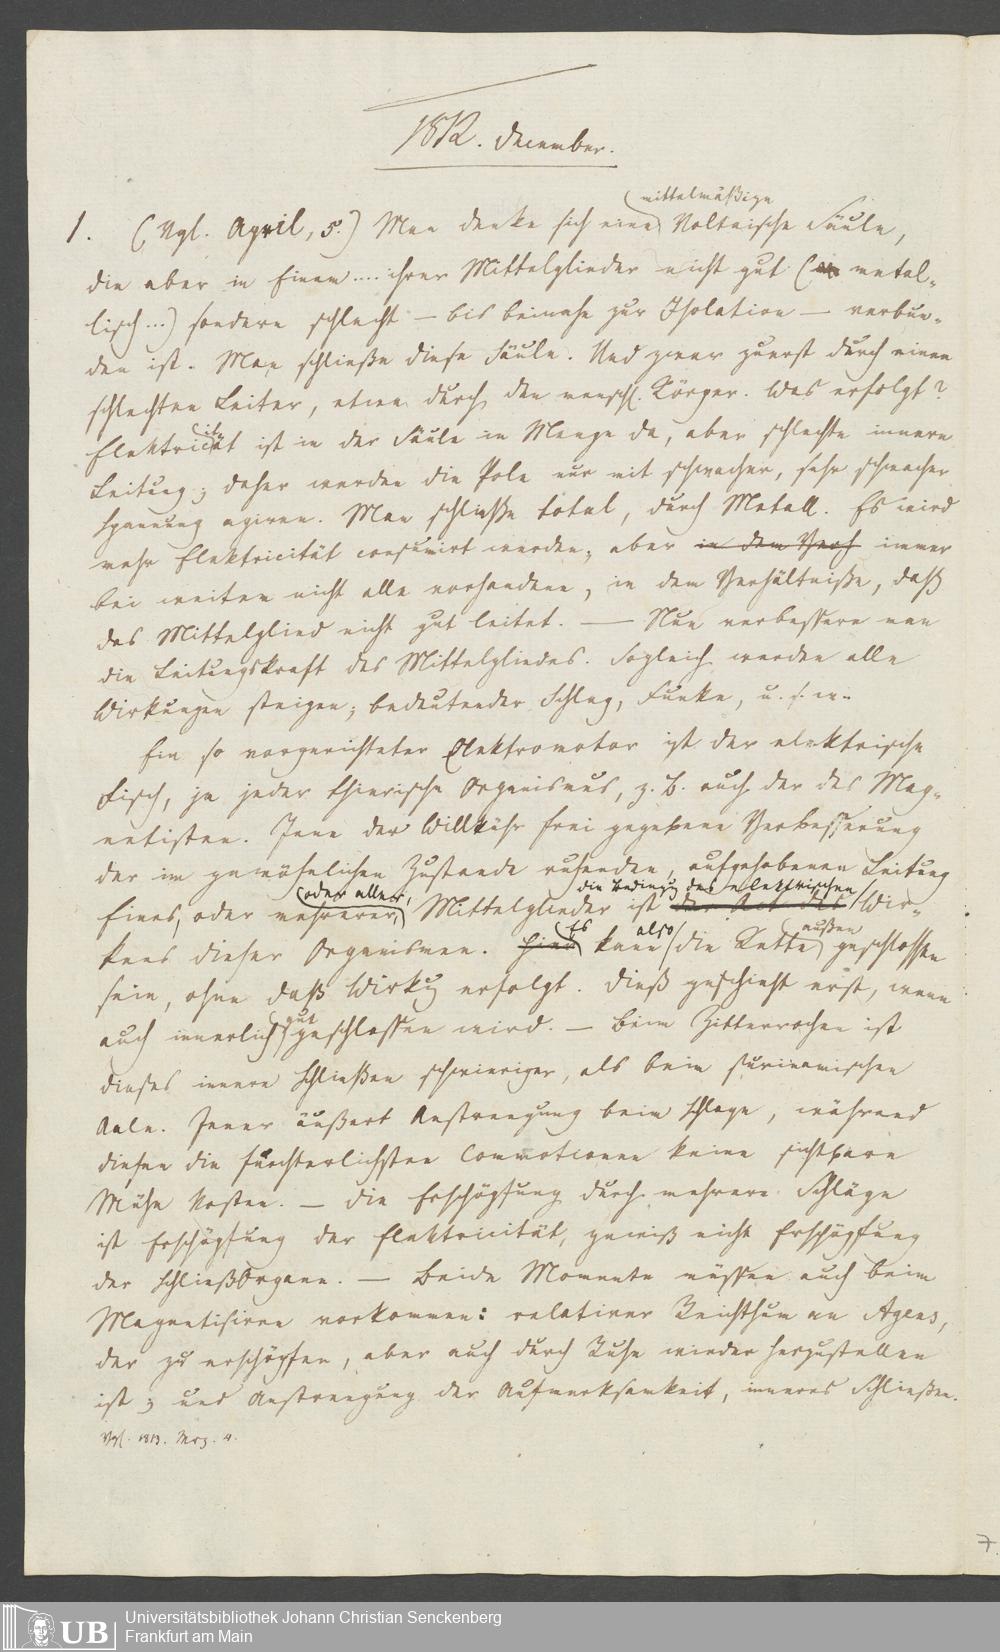 1812. December.
mittelmäßige
1. (Vgl. April, 5.) Man denke sich eine Voltaische Säule,
die aber in Einem .... ihrer Mittelglieder nicht gut (metal-
lisch ...) sondern schlecht – bis beinahe zur Isolation – verbun-
den ist. Man schließe diese Säule. Und zwar zuerst durch einen
schlechten Leiter, etwa durch den menschl. Körper. Was erfolgt?
Elektricität ist in der Säule in Menge da, aber schlechte innere
Leitung; daher werden die Pole nur mit schwacher, sehr schwacher
Spannung agiren. Man schließe total, durch Metall. Es wird
mehr Elektricität consumirt werden, aber in dem Verh immer
bei weitem nicht alle vorhandene, in dem Verhältniße, daß
das Mittelglied nicht gut leitet. — Nun verbessere man
die Leitungskraft des Mittelgliedes. Sogleich werden alle
Wirkungen steigen; bedeutender Schlag, Funke, u. s. w.
Ein so vorgerichteter Elektromotor ist der elektrische
Fisch, ja jeder thierische Organismus, z. B. auch der des Mag-
netisten. Jene der Willkühr frei gegebene Verbesserung
der im gewöhnlichen Zustande ruhenden, aufgehobenen Leitung
oder aller, die Beding des elektrischen
Eines, oder mehrerer Mittelglieder ist der Act des Wir-
Es also außen
kens dieser Organismen. Hier kann die Kette geschlossen
sein, ohne daß Wirkg erfolgt. Dieß geschieht erst, wenn
gut
auch innerlich geschlossen wird. – Beim Zitterrochen ist
dieses innere Schließen schwieriger, als beim surinamischen
Aale. Jener äußert Anstrengung beim Schlage, während
diesen die fürchterlichsten Commotionen keine sichtbare
Mühe kosten. – Die Erschöpfung durch mehrere Schläge
ist Erschöpfung der Elektricität, gewiß nicht Erschöpfung
der Schließorgane. – Beide Momente müssen auch beim
Magnetisiren vorkommen: relativer Reichthum an Agens,
der zu erschöpfen, aber auch durch Ruhe wieder herzustellen
ist; und Anstrengung der Aufmerksamkeit, inneres Schließen.
Vgl. 1813. Merz. 4.
7.
UB Universitätsbibliothek Johann Christian Senckenberg
Frankfurt am Main